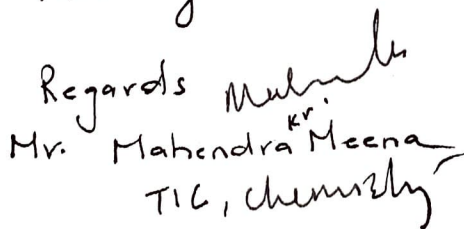 Regards
Mr. Mahendra Kr. Meena
TIC, Chemistry